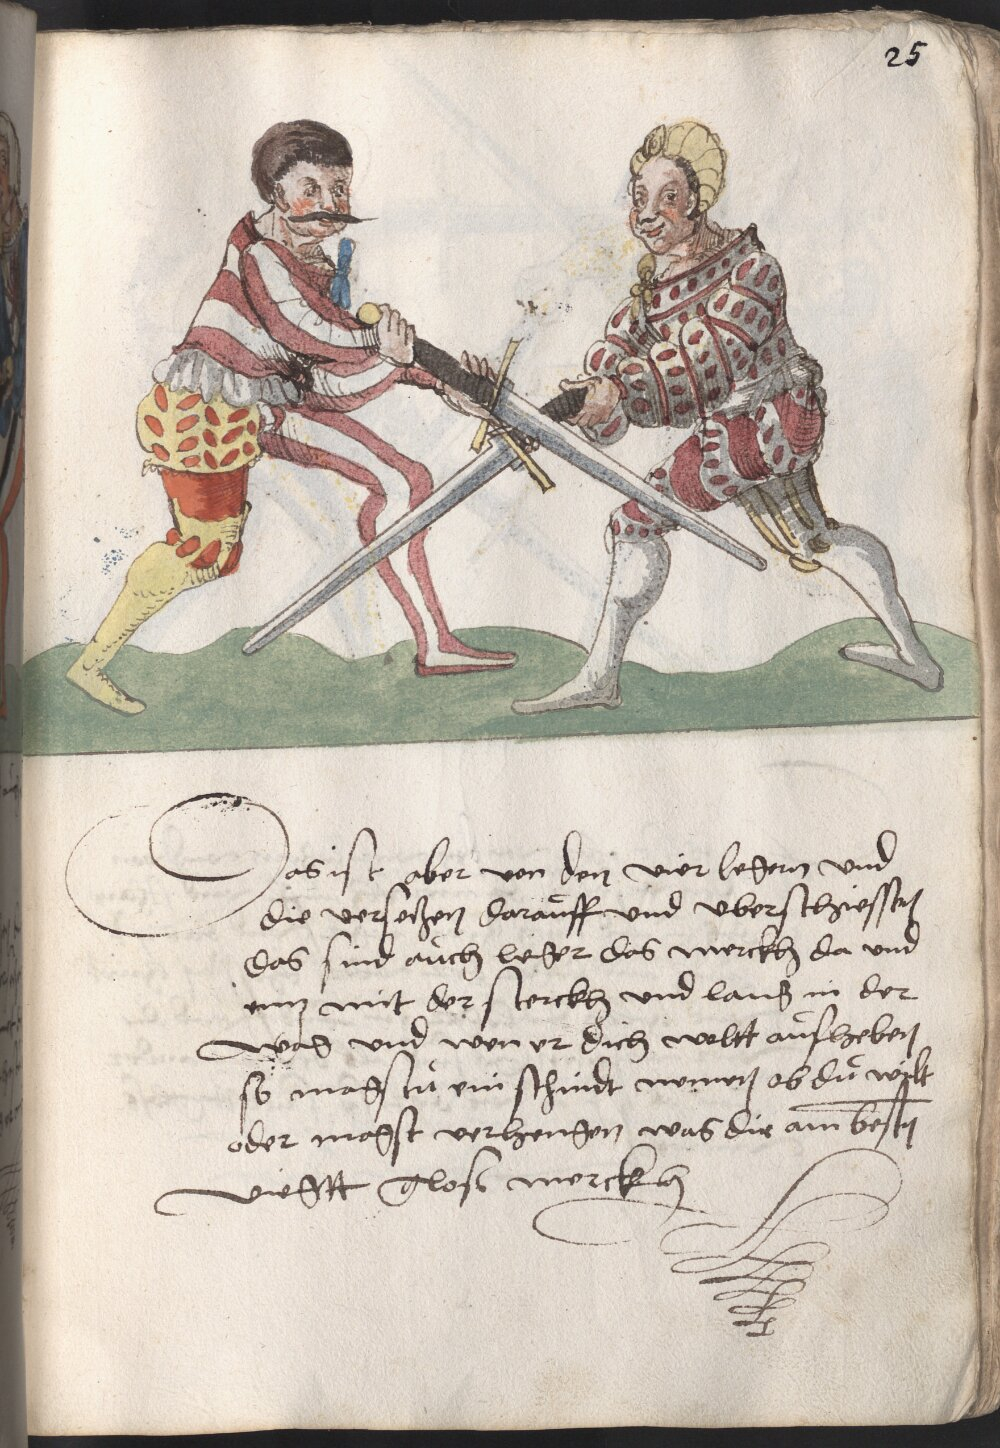 25
Das ist aber von den vier legern vnd
die verseczen darauff vnd vberschiessen
das sind auch leger das merckh da vnd
mit der sterckh vnd lang in der
wag vnd wen er dich weltt auffheben
so magstu ein schindt nemen ob du wilt
oder magst verhengen was dir am besten
fiegtt glosa merckh